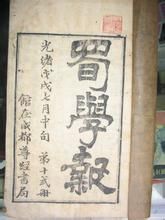 蜀學報
光緒戊戌七月中旬 第十弍册
館在成都尊經書局